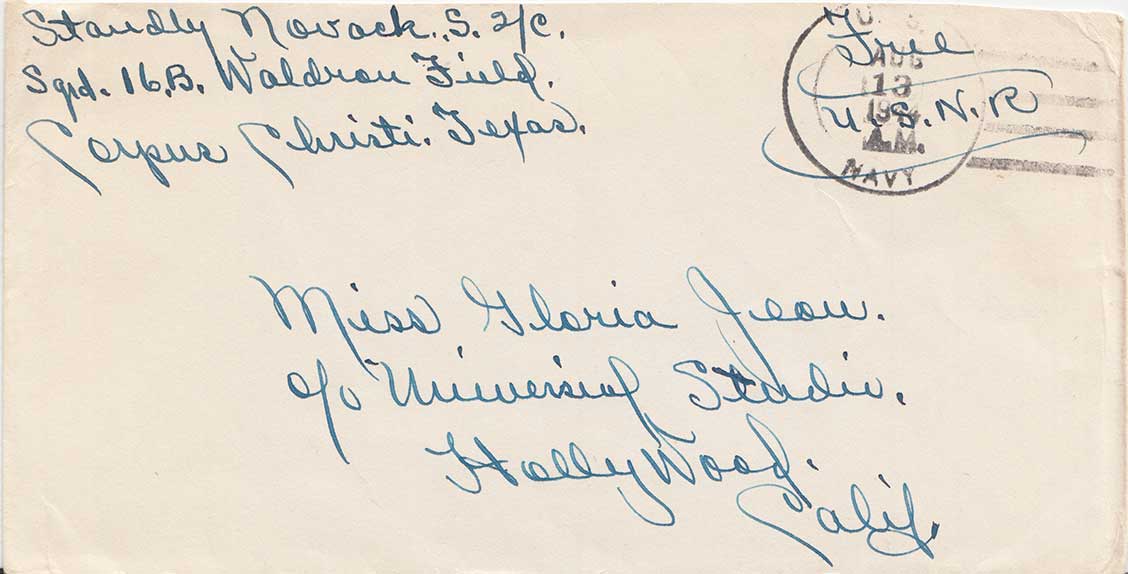 Standly Novack. S. 2/C.
Sqd. 16.B. Waldron Field.
Corpus Christi. Texas.
Free
U.S.N.R
U.S.
AUG
13
A.M.
NAVY
Miss Gloria Jean.
c/o Universal Studio.
HollyWood.
Calif.